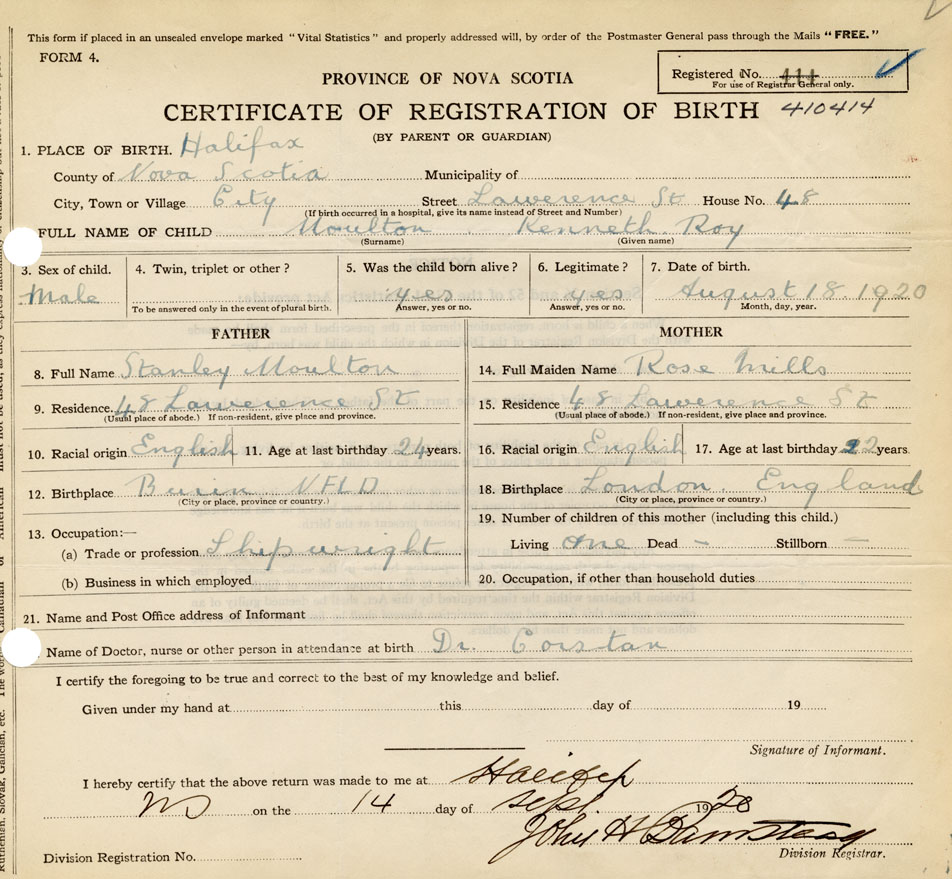 This form if placed in an unsealed envelope marked "Vital Statistics" and properly addressed will, by order of the Postmaster General pass through the Mails "FREE."
FORM 4.
Registered No. 414
For use of Registrar General only.
PROVINCE OF NOVA SCOTIA
CERTIFICATE OF REGISTRATION OF BIRTH 410414
(BY PARENT OR GUARDIAN)
1. PLACE OF BIRTH. Halifax
County of Nova Scotia Municipality of
City, Town or Village City Street Lawerence St House No. 48
(If birth occurred in a hospital, give its name instead of Street and Number)
FULL NAME OF CHILD Moulton Kenneth Roy
(Surname) (Given name)
3. Sex of child. 4. Twin, triplet or other? 5. Was the child born alive? 6. Legitimate? 7. Date of birth.
Male yes yes August 18. 1920
To be answered only in the event of plural birth. Answer, yes or no. Answer, yes or no. Month, day, year.
FATHER MOTHER
8. Full Name Stanley Moulton 14. Full Maiden Name Rose Mills
9. Residence. 48 Lawerence St 15. Residence 48 Lawerence St
(Usual place of abode.) If non-resident, give place and province. (Usual place of abode.) If non-resident, give place and province.
10. Racial origin English 11. Age at last birthday 24 years. 16. Racial origin English 17. Age at last birthday 22 years
12. Birthplace Burin NFLD 18. Birthplace London. England
(City or place, province or country.) (City or place, province or country.)
13. Occupation:— 19. Number of children of this mother (including this child.)
(a) Trade or profession Shipwright Living one Dead - Stillborn -
(b) Business in which employed 20. Occupation, if other than household duties
21. Name and Post Office address of Informant
Name of Doctor, nurse or other person in attendance at birth Dr. Corstan
I certify the foregoing to be true and correct to the best of my knowledge and belief.
Given under my hand at this day of 19
Signature of Informant.
I hereby certify that the above return was made to me at Halifax
NS on the 14 day of Sept 1920
John H Barnstead
Division Registration No. Division Registrar.